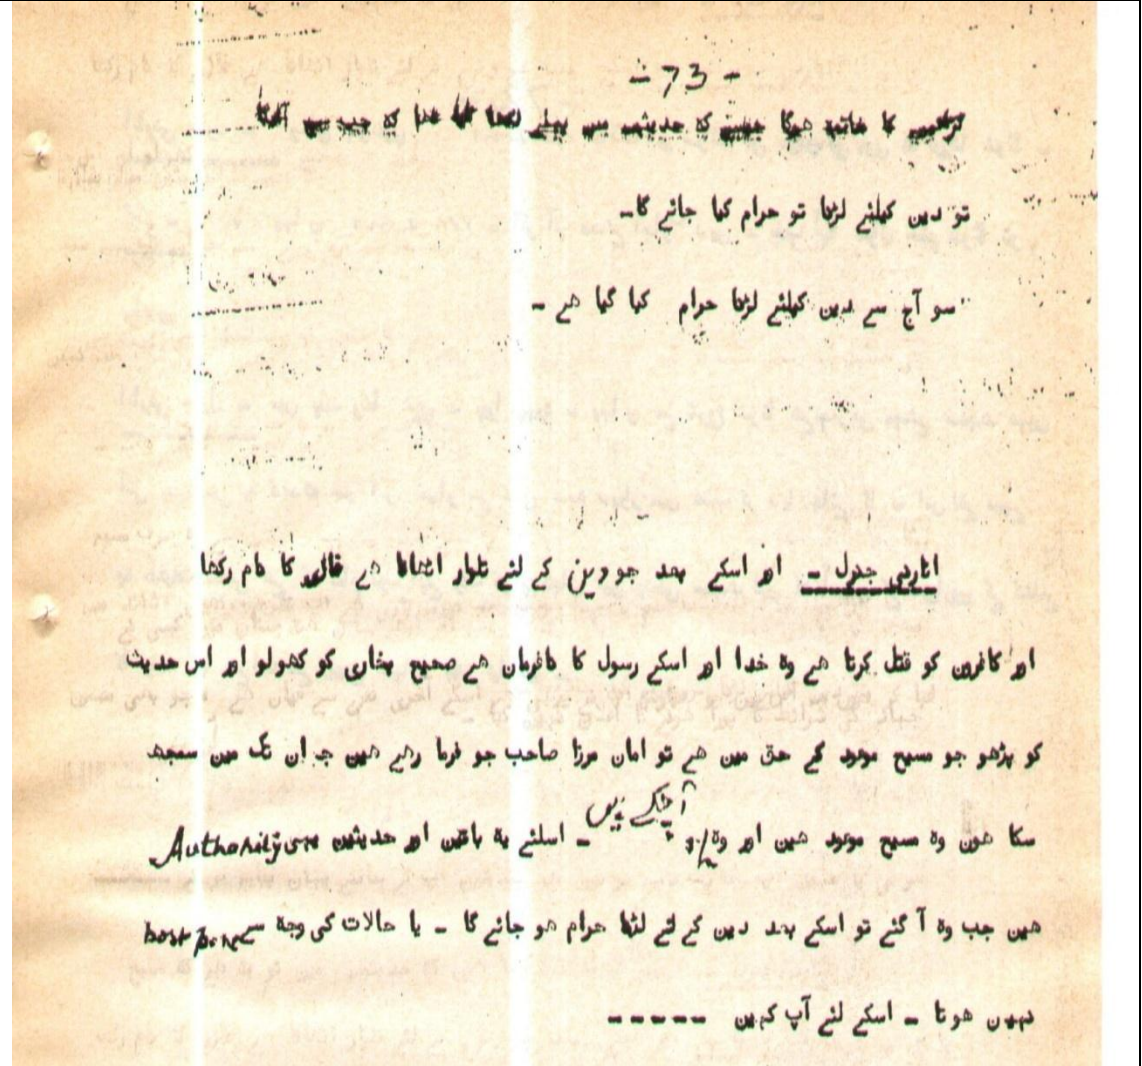 - 73 -
کا خاتمہ ہوگا
تو دین کیلئے لڑنا تو حرام کیا جائے گا۔
سو آج سے دین کیلئے لڑنا حرام کیا گیا ہے ۔
اٹارنی جنرل ۔ اور اسکے بعد جو دین کے لئے تلوار اٹھاتا ہے غازی کا نام رکھا
اور کافرون کو قتل کرتا ہے وہ خدا اور اسکے رسول کا نافرمان ہے صحیح بخاری کو کھولو اور اس حدیث
کو پڑھو جو مسیح موعود کے حق مین ہے تو امان مرزا صاحب جو فرما رہے ہین جہان تک مین سمجھ
سکا ہون وہ مسیح موعود ہین اور وہ آ چکے ہیں ۔ اسلئے یہ باتین اور حدیثین Authority
ہین جب وہ آ گئے تو اسکے بعد دین کے لئے لڑنا حرام ہو جائے گا ۔ یا حالات کی وجہ سے
نہین ہوتا ۔ اسکے لئے آپ کہین -----